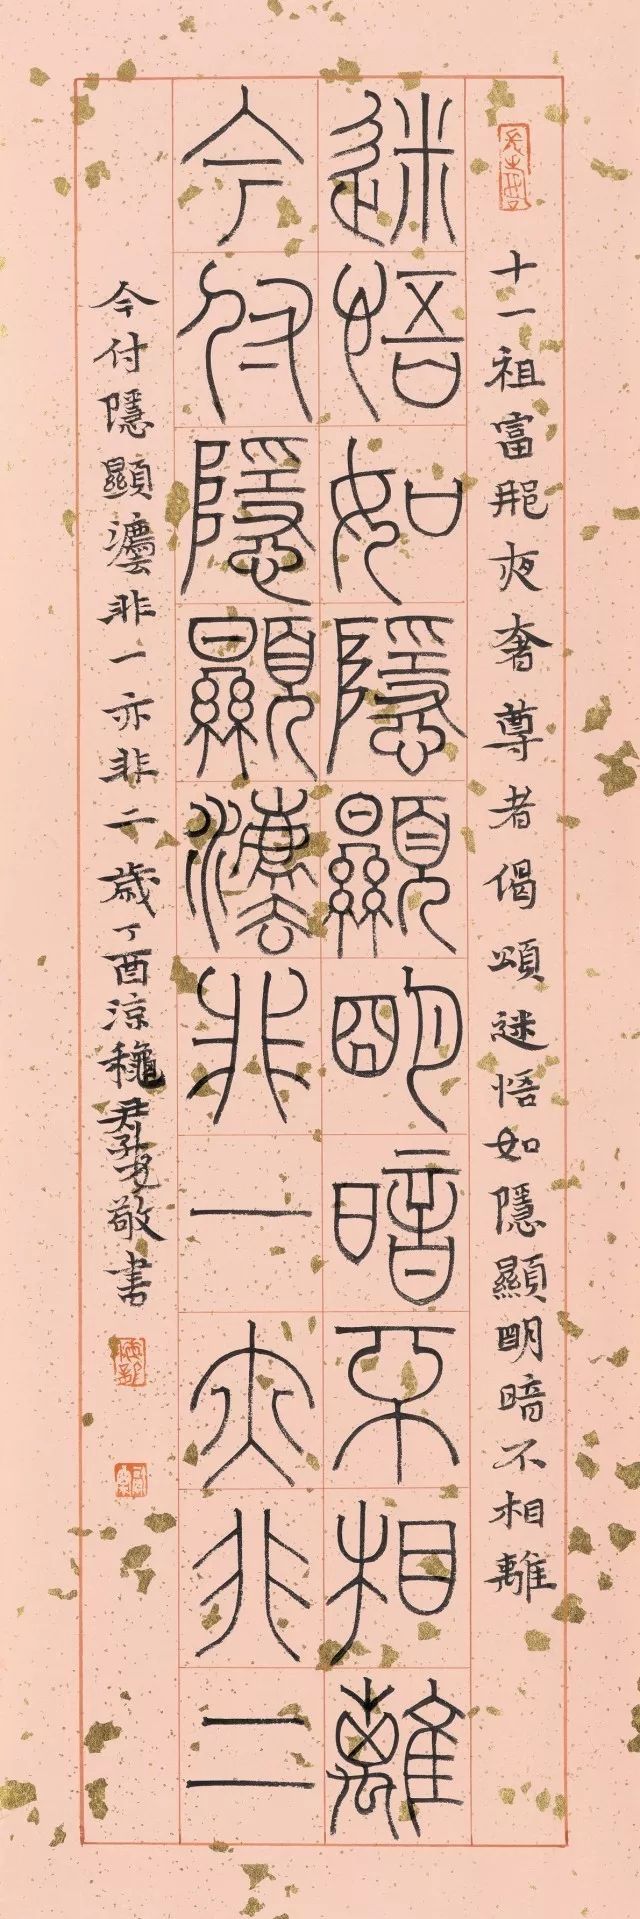 十一祖富那夜奢尊者偈頌迷悟如隱顯明暗不相離
迷悟如隱顯朙暗不相離
今付隱顯灋非一亦非二
今付隱顯灋非一亦非二歲丁酉涼龝尹敬書